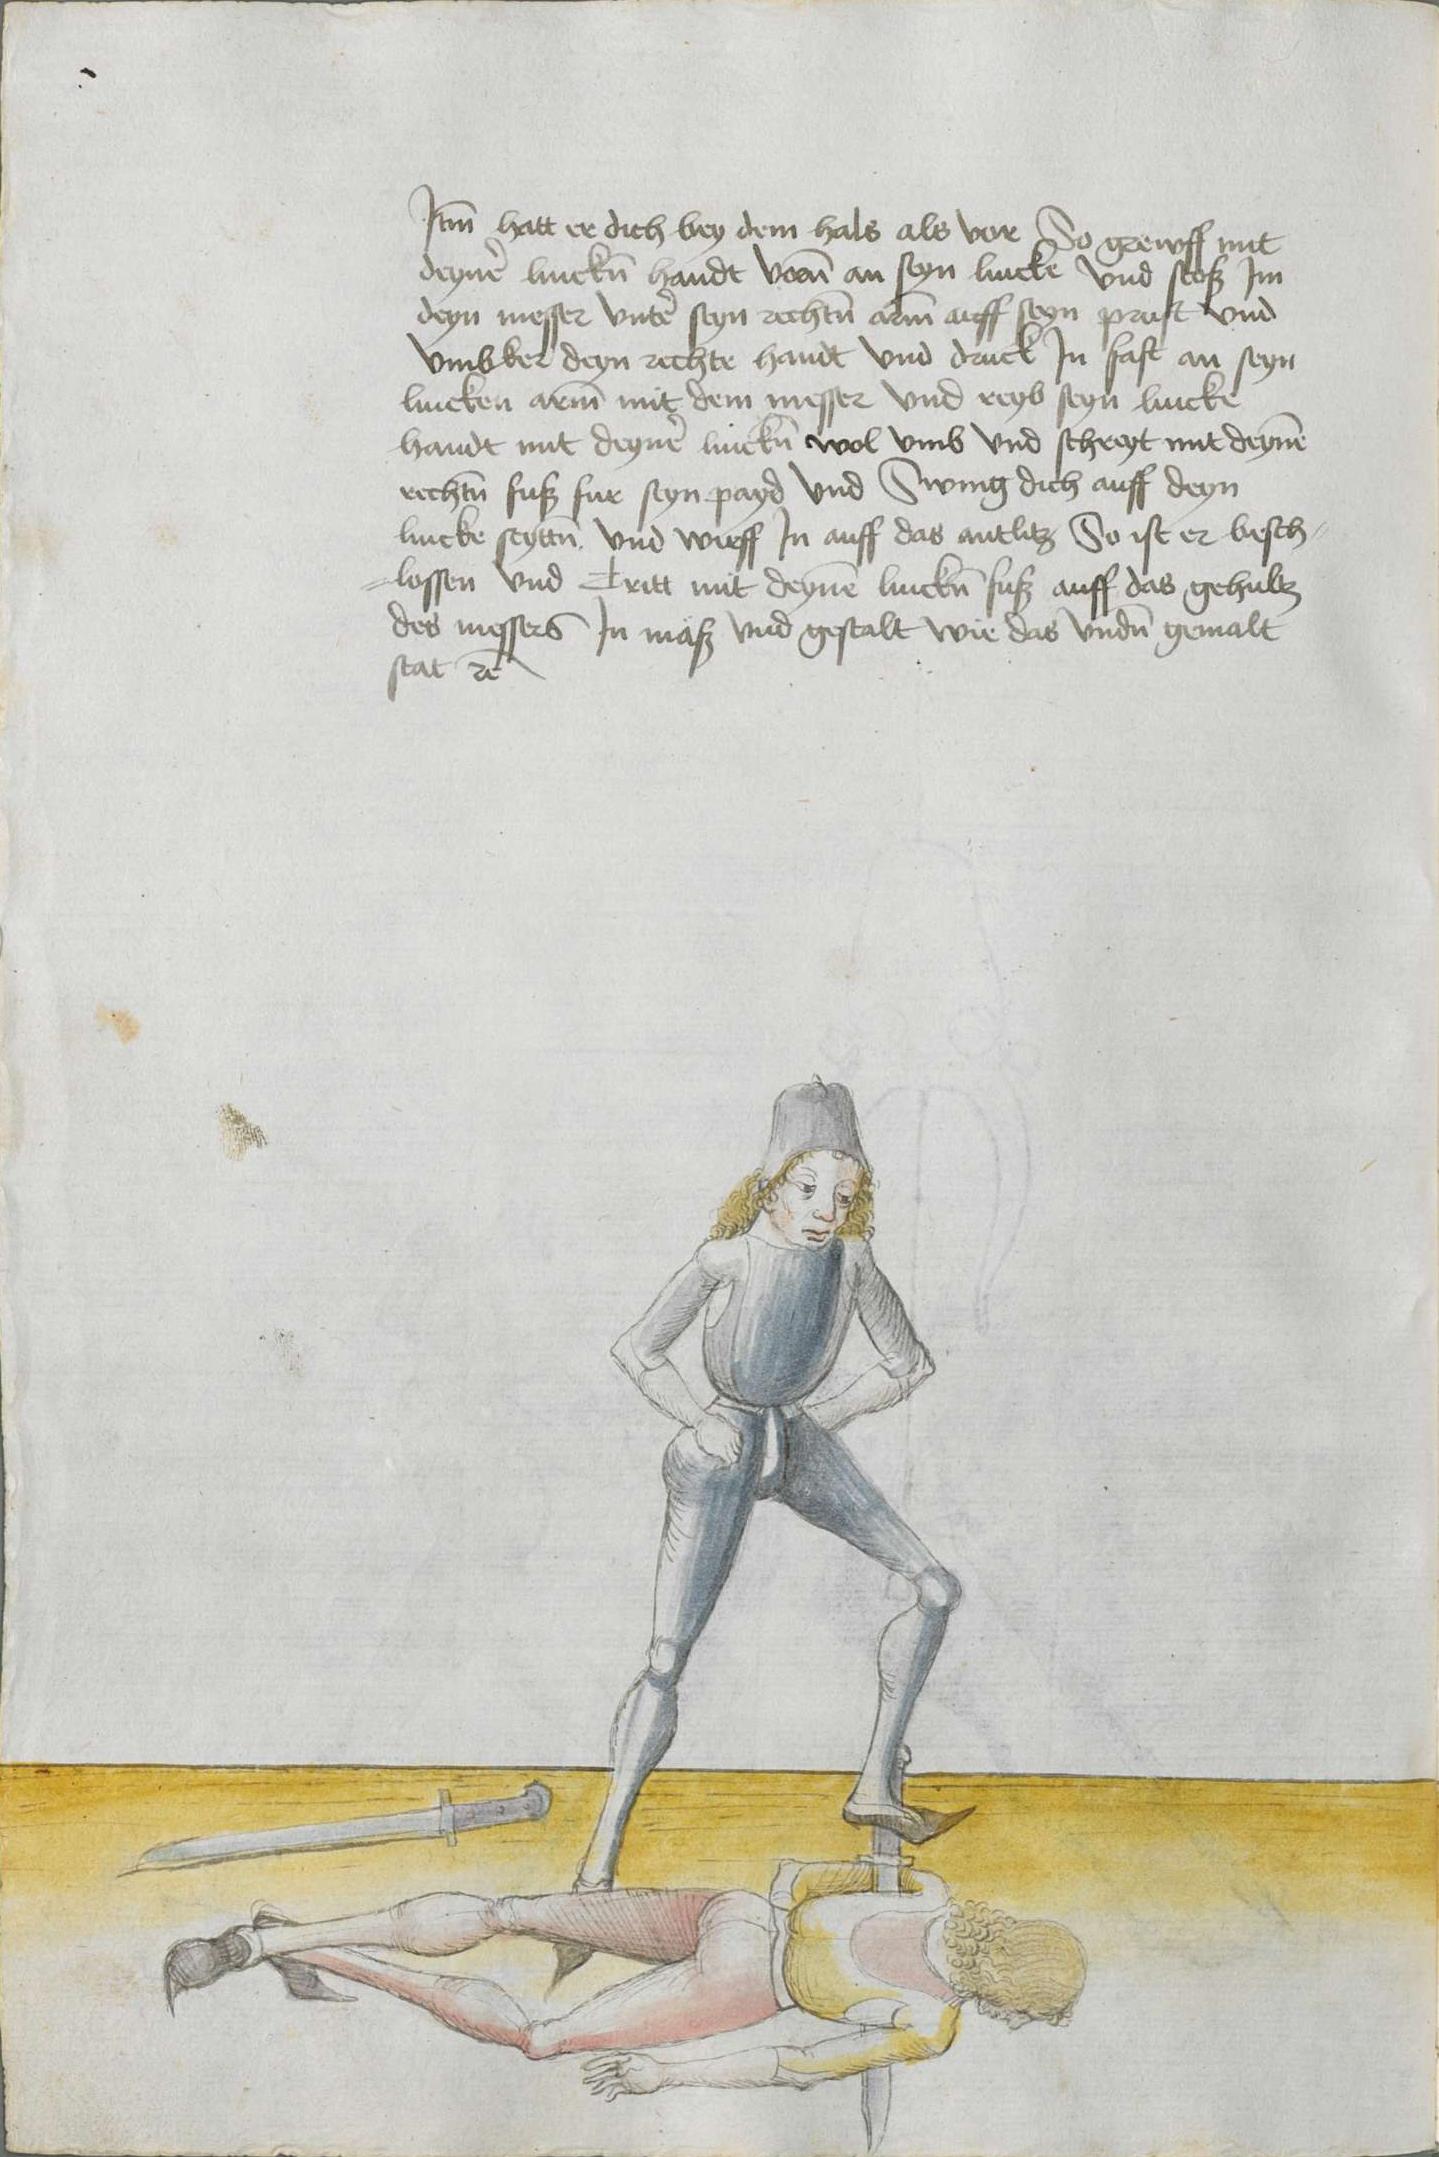 Itm̄ hatt er dich bey dem hals als vor So greyff mit
deyner̄ linckn̄ handt vorn̄ an seyn lincke vnd stoß Im
deyn messer vnter̄ seyn rechtn̄ arm̄ auff seyn prust vnd
vmbker deyn rechte handt vnd druck In fast an seyn
lincken arm̄ mit dem messer vnd reyb seyn lincke
handt mit deyner̄ linckn̄ wol vmb vnd schreyt mit deynē
rechtn̄ fuß fur seyn payd vnd Swing dich auff deyn
lincke seyttn̄ vnd wirff In auff das antlitz So ist er besch-
-lossen vnd Tritt mit deynē linckn̄ fuß auff das gehultz
des messers In maß vnd gestalt wie das vndn̄ gemalt
stat